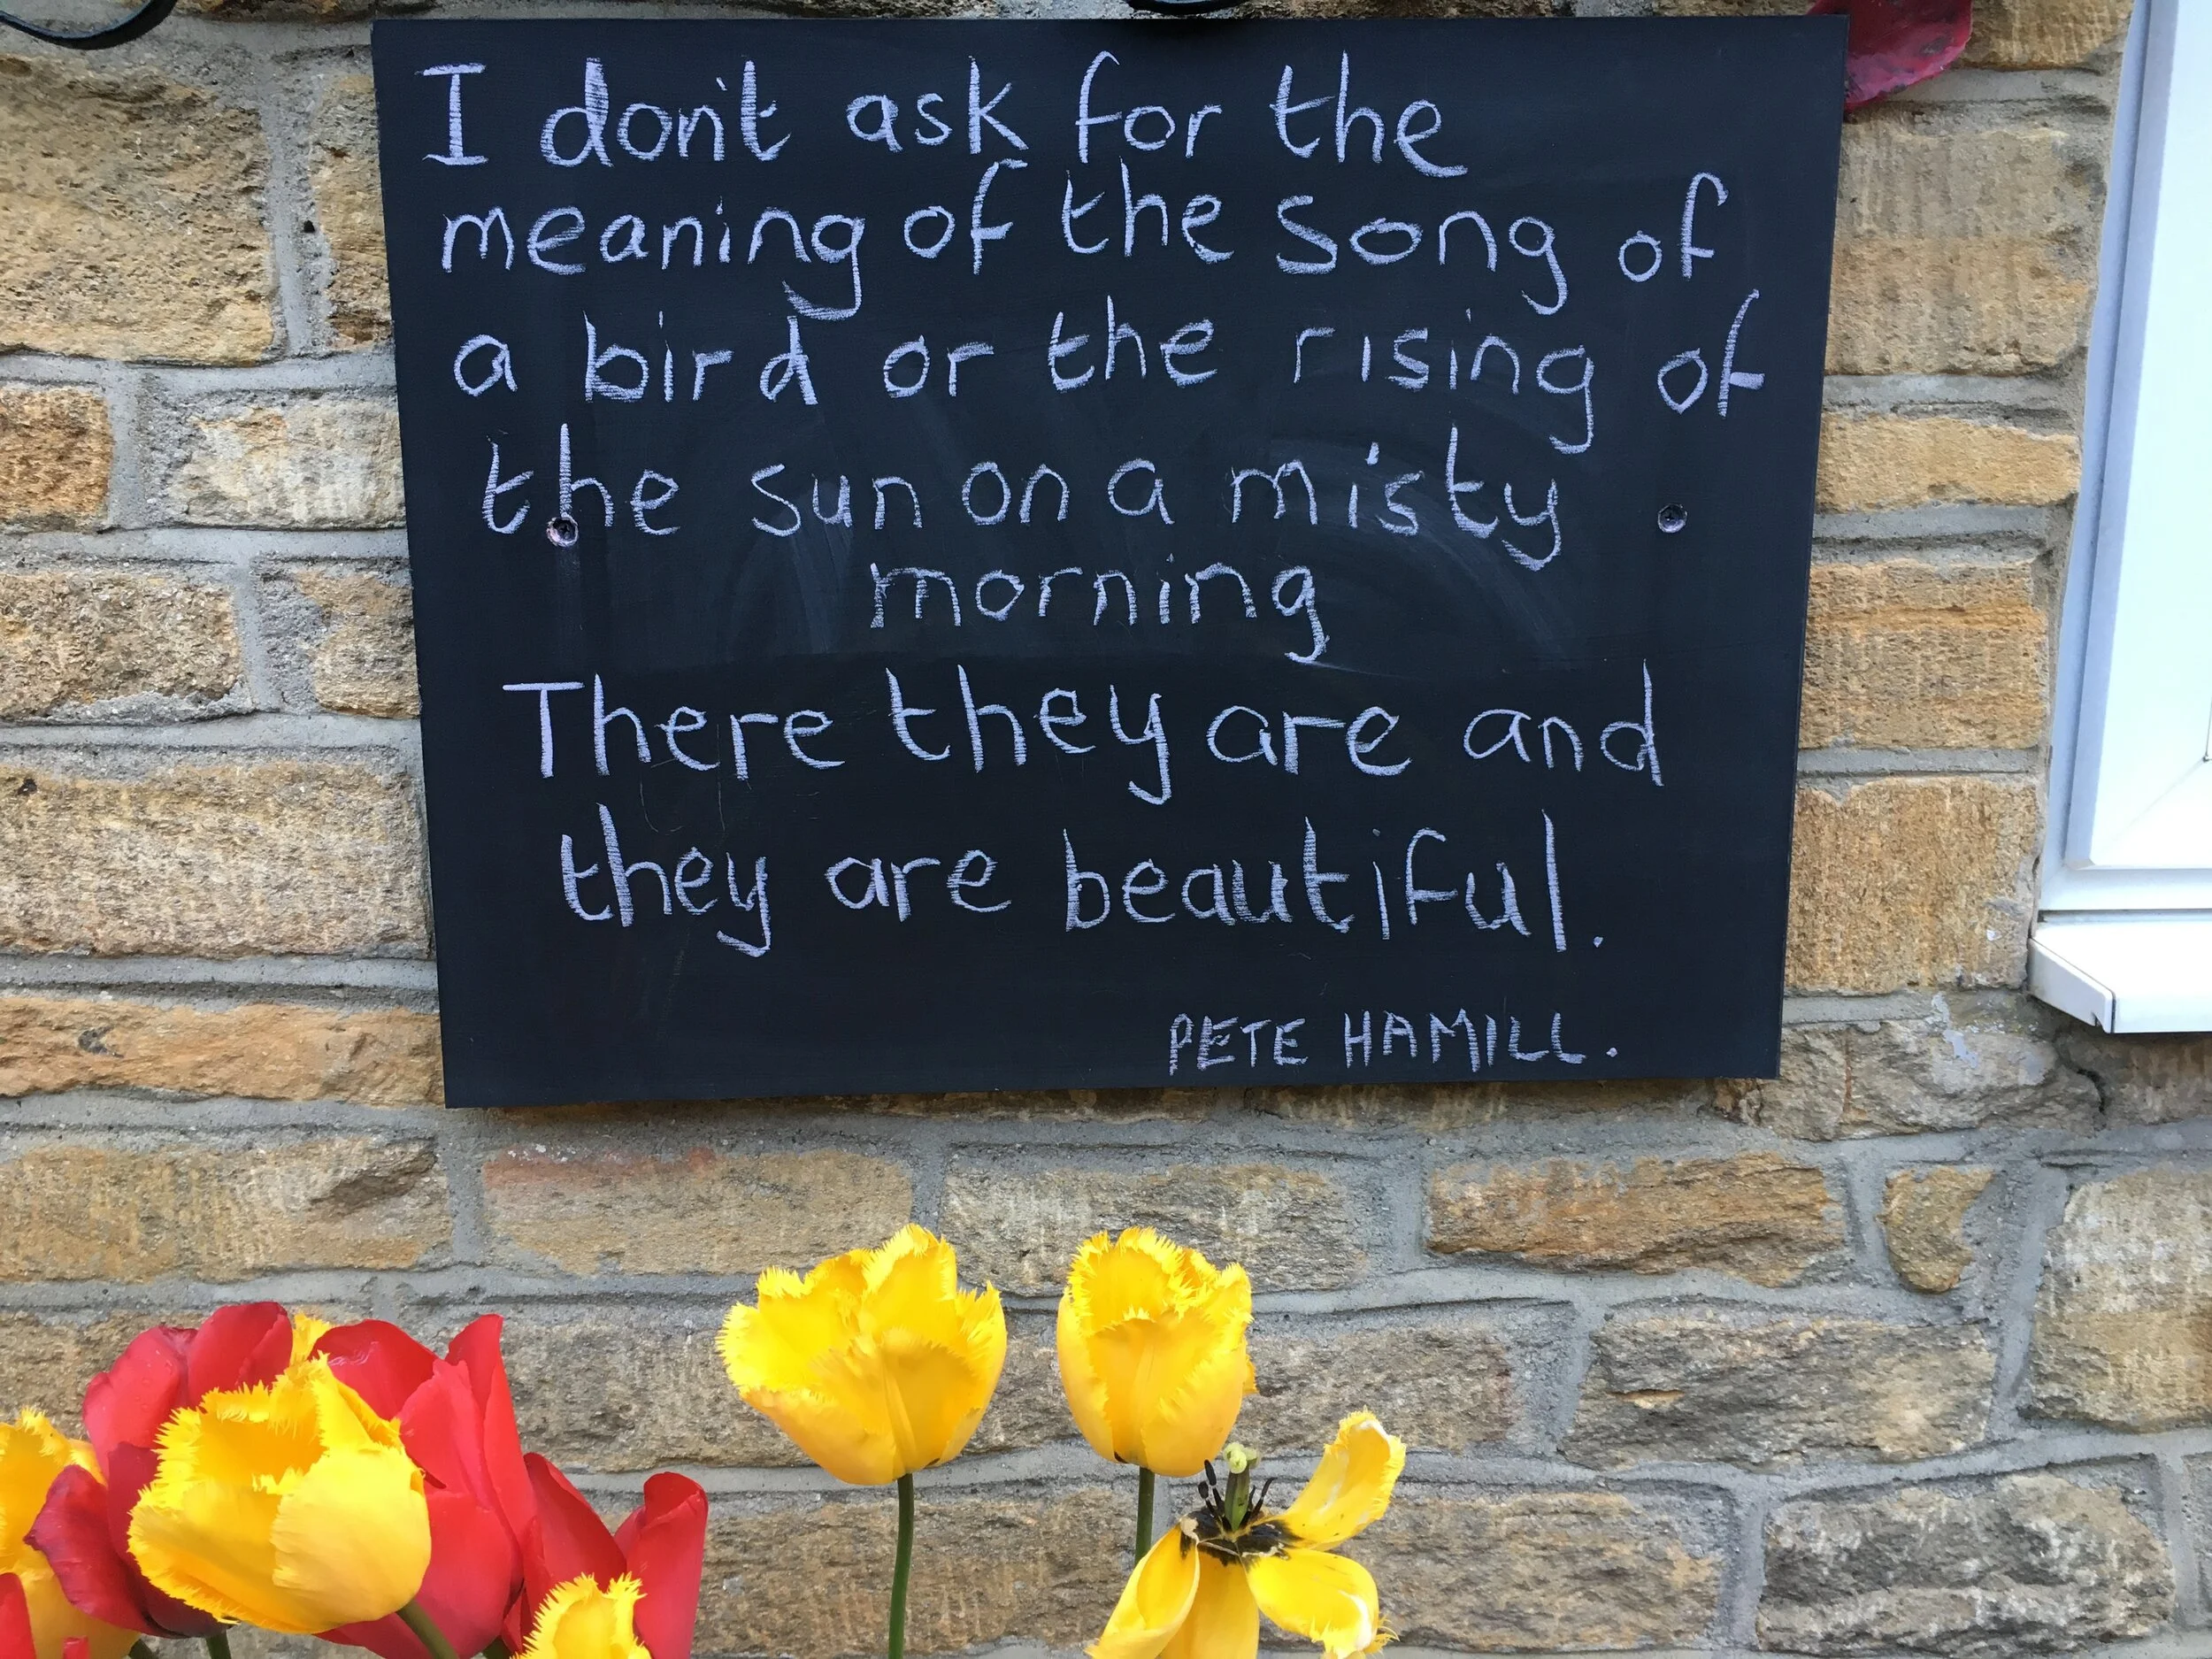 I don't ask for the
meaning of the song of
a bird or the rising of
the sun on a misty
morning
There they are and
they are beautiful.
PETE HAMILL.